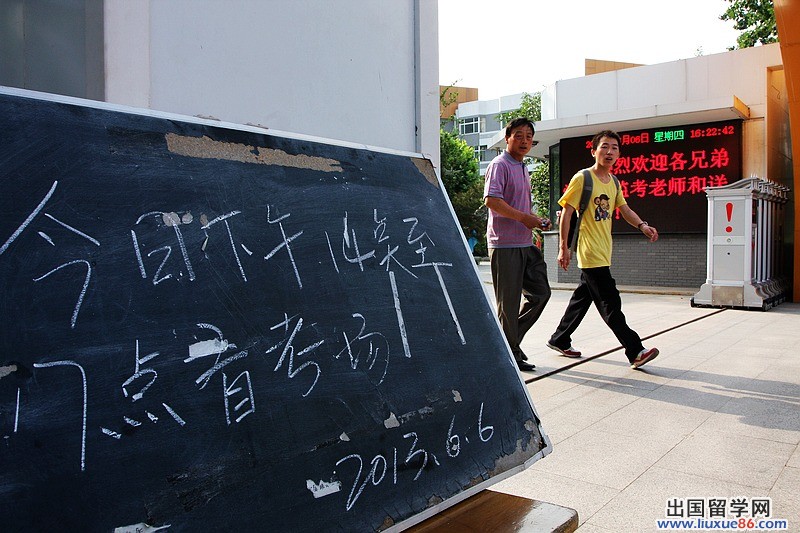 今日下午14点至
17点看考场
2013.6.6
月06日 星期四 16:22:42
烈欢迎各兄弟
监考老师和
!
出国留学网
www.liuxue86.com